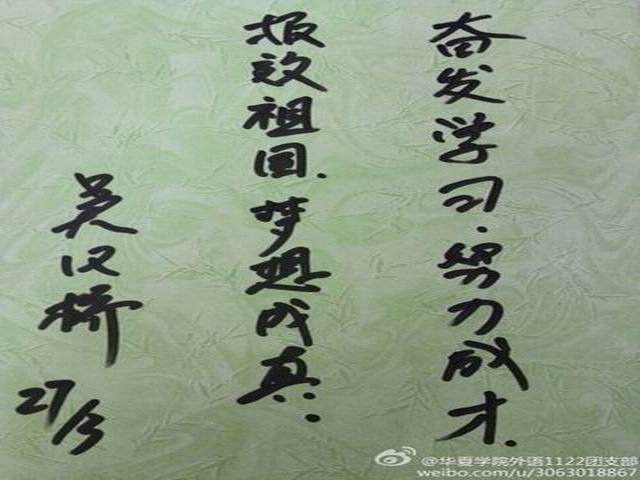 奋发学习.努力成才.
报效祖国.梦想成真.
吴汉桥
27/3
@华夏学院外语1122团支部
weibo.com/u/3063018867